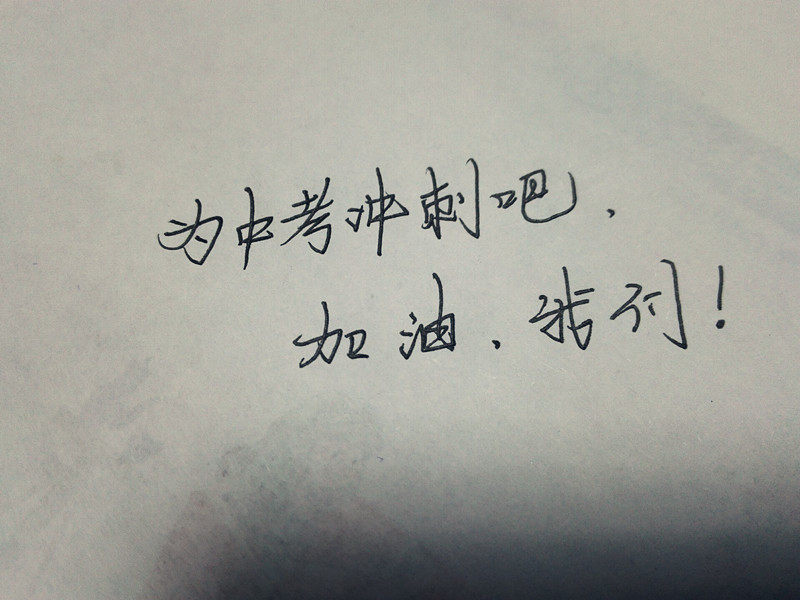 为中考冲刺吧，
加油，